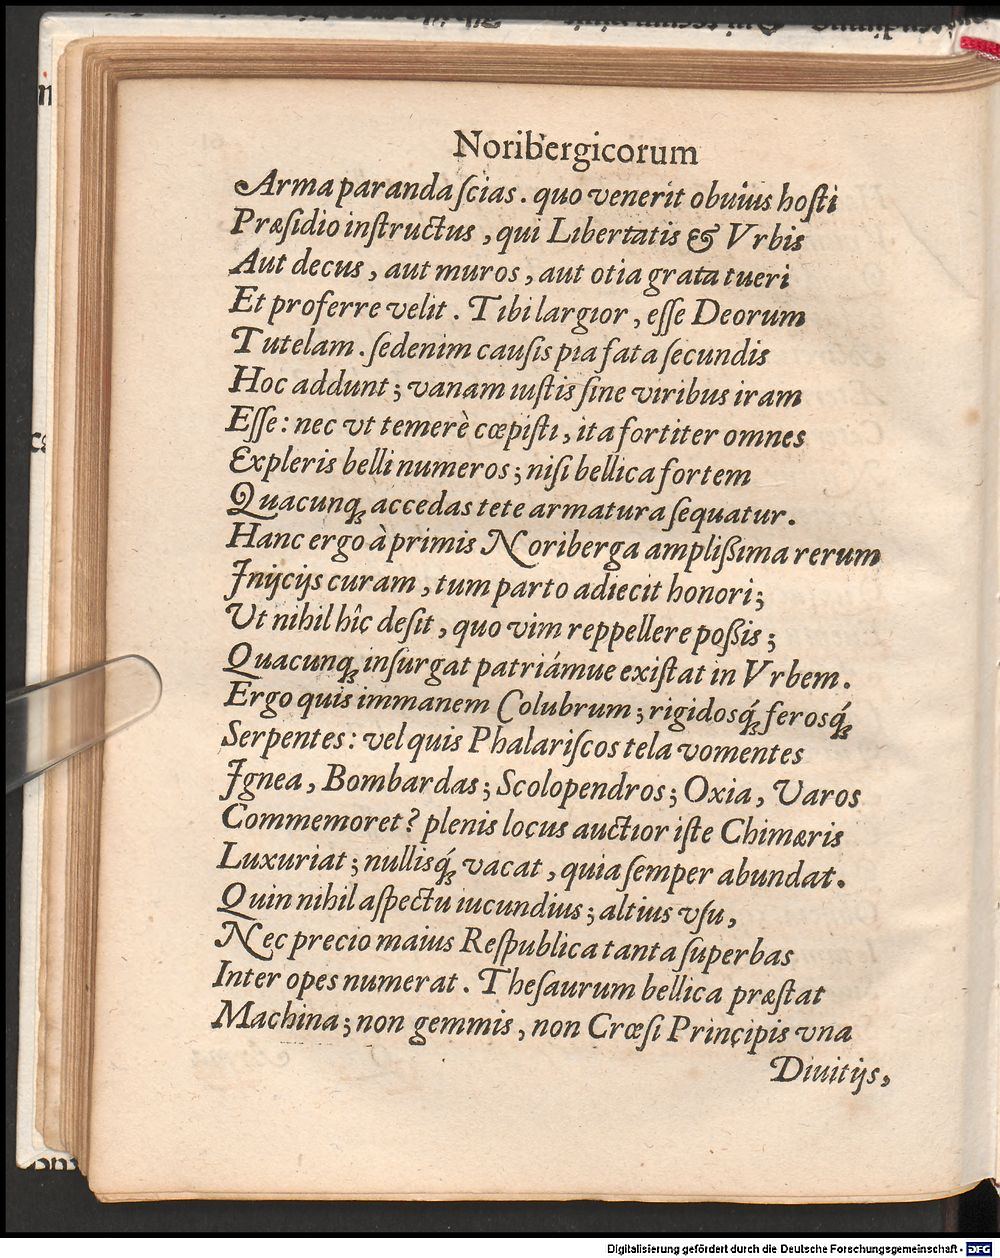 Noribergicorum
Arma paranda ſcias. quo venerit obuius hoſti
Præſidio inſtructus, qui Libertatis & Vrbis
Aut decus, aut muros, aut otia grata tueri
Et proferre velit. Tibi largior, eſſe Deorum
Tutelam. ſed enim cauſis pia fata ſecundis
Hoc addunt; vanam iuſtis ſine viribus iram
Eſſe: nec vt temerè cœpiſti, ita fortiter omnes
Expleris belli numeros; niſi bellica fortem
Quacunq́ꝫ accedas tete armatura ſequatur.
Hanc ergo à primis Noriberga ampliſsima rerum
Inijcijs curam, tum parto adiecit honori;
Vt nihil hîc deſit, quo vim reppellere poſsis;
Quacunqꝫ inſurgat patriámue exiſtat in Vrbem.
Ergo quis immanem Colubrum; rigidosq́ꝫ ferosq́ꝫ
Serpentes: vel quis Phalariſcos tela vomentes
Ignea, Bombardas; Scolopendros; Oxia, Varos
Commemoret? plenis locus auctior iſte Chimæris
Luxuriat; nullisq́ꝫ vacat, quia ſemper abundat.
Quin nihil aſpectu iucundius; altius vſu,
Nec precio maius Reſpublica tanta ſuperbas
Inter opes numerat. Theſaurum bellica præſtat
Machina; non gemmis, non Crœſi Principis vna
Diuitijs,
Digitalisierung gefördert durch die Deutsche Forschungsgemeinschaft - DFG